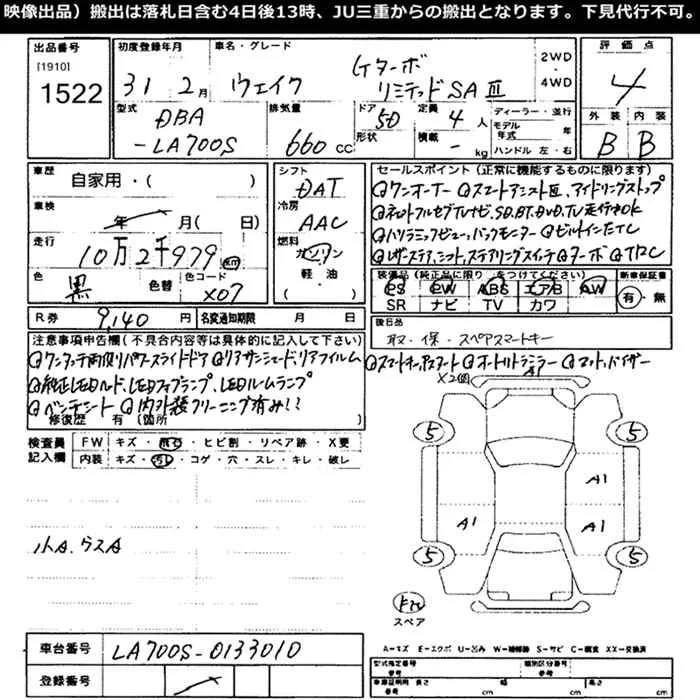 映像出品）搬出は落札日含む4日後13時、JU三重からの搬出となります。下見代行不可。
出品番号 初度登録年月 車名・グレード 評価点
[1910]
1522
31 2月 ウェイク Gターボ
リミテッドSAⅢ
2WD
4WD
4
型式 排気量 ドア 定員 ディーラー・並行 外装 内装
DBA
-LA700S 660cc 5D 4人
形状 積載 - kg
モデル年式 年
ハンドル 左・右
B B
車歴 自家用・( ) シフト DAT
車検 年 月( 日) 冷房 AAC
走行 10万2千979 km 燃料 ガソリン
軽・油
色 黒 色替 色コード X07
R券 9,140円 名変通知期限 月 日
セールスポイント（正常に機能するものに限ります）
@ワンオーナー @スマートアシストⅢ、アイドリングストップ
@ネットフルセグTVナビ、SD,BT,DVD,TV走行中OK
@パノラミックビュー、バックモニター @ビルトインETC
@レザーステア、シフト、ステアリングスイッチ @ターボ @TRC
装備品（純正品に限り○をつけてください） 新車保証書
PS PW ABS エアB AW
SR ナビ TV カワ
有・無
後日品
取・保・スペアスマートキー
注意事項申告欄（不具合内容等は具体的に記入して下さい）
@ワンタッチ両側パワースライドドア @リアサンシェード、リアフィルム
@スマートキー、Pスタート @オートリトラミラー @マット、バイザー
X2個
@純正LEDヘッド、LEDフォグランプ、LEDルームランプ
@ベンチシート @内外装クリーニング済み!!
修復歴 有(箇所 )
検査員記入欄
FW キズ・飛石・ヒビ割・リペア跡・X要
内装 キズ・汚レ・コゲ・穴・スレ・キレ・破レ
小A.ウスA
A1
5 5
A1
A1 A1
5 5
スペア
車台番号 LA700S-0133010
登録番号
A=キズ E=エクボ U=凹み W=補修跡 S=サビ C=腐食 XX=交換済
型式指定番号 類別区分番号
参考 参考
車庫証明用 長さ 幅 高さ
参考 cm cm cm